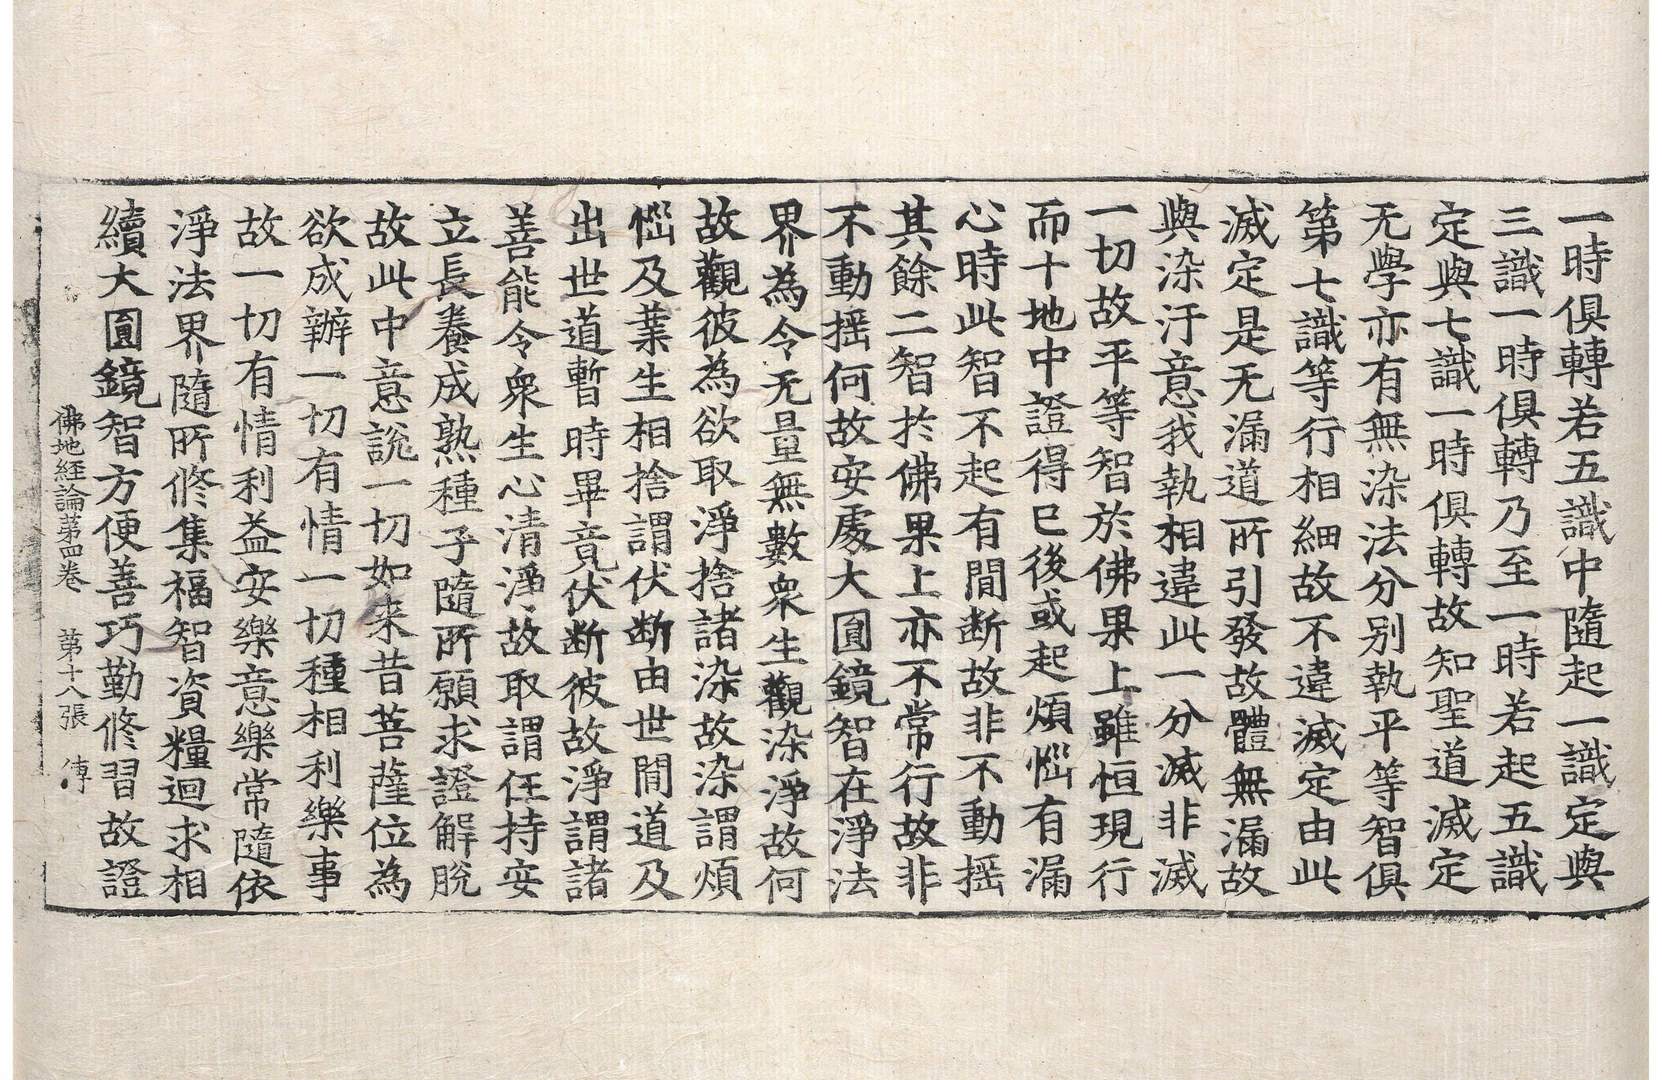 一時俱轉若五識中隨起一識定與
三識一時俱轉乃至一時若起五識
定與七識一時俱轉故知聖道滅定
无學亦有無染法分別執平等智俱
第七識等行相細故不違滅定由此
滅定是无漏道所引發故體無漏故
與染汙意我執相違此一分滅非滅
一切故平等智於佛果上雖恒現行
而十地中證得已後或起煩惱有漏
心時此智不起有間断故非不動摇
其餘二智於佛果上亦不常行故非
不動摇何故安處大圓鏡智在淨法
界為令无量無數衆生觀染淨故何
故觀彼為欲取淨捨諸染故染謂煩
惱及業生相捨謂伏断由世間道及
出世道暫時畢竟伏断彼故淨謂諸
善能令衆生心清淨故取謂任持安
立長養成熟種子隨所願求證解脫
故此中意說一切如来昔菩薩位為
欲成辦一切有情一切種相利樂事
故一切有情利益安樂意樂常隨依
淨法界隨所修集福智資糧迴求相
續大圓鏡智方便善巧勤修習故證
佛地經論第四卷 第十八張 傅